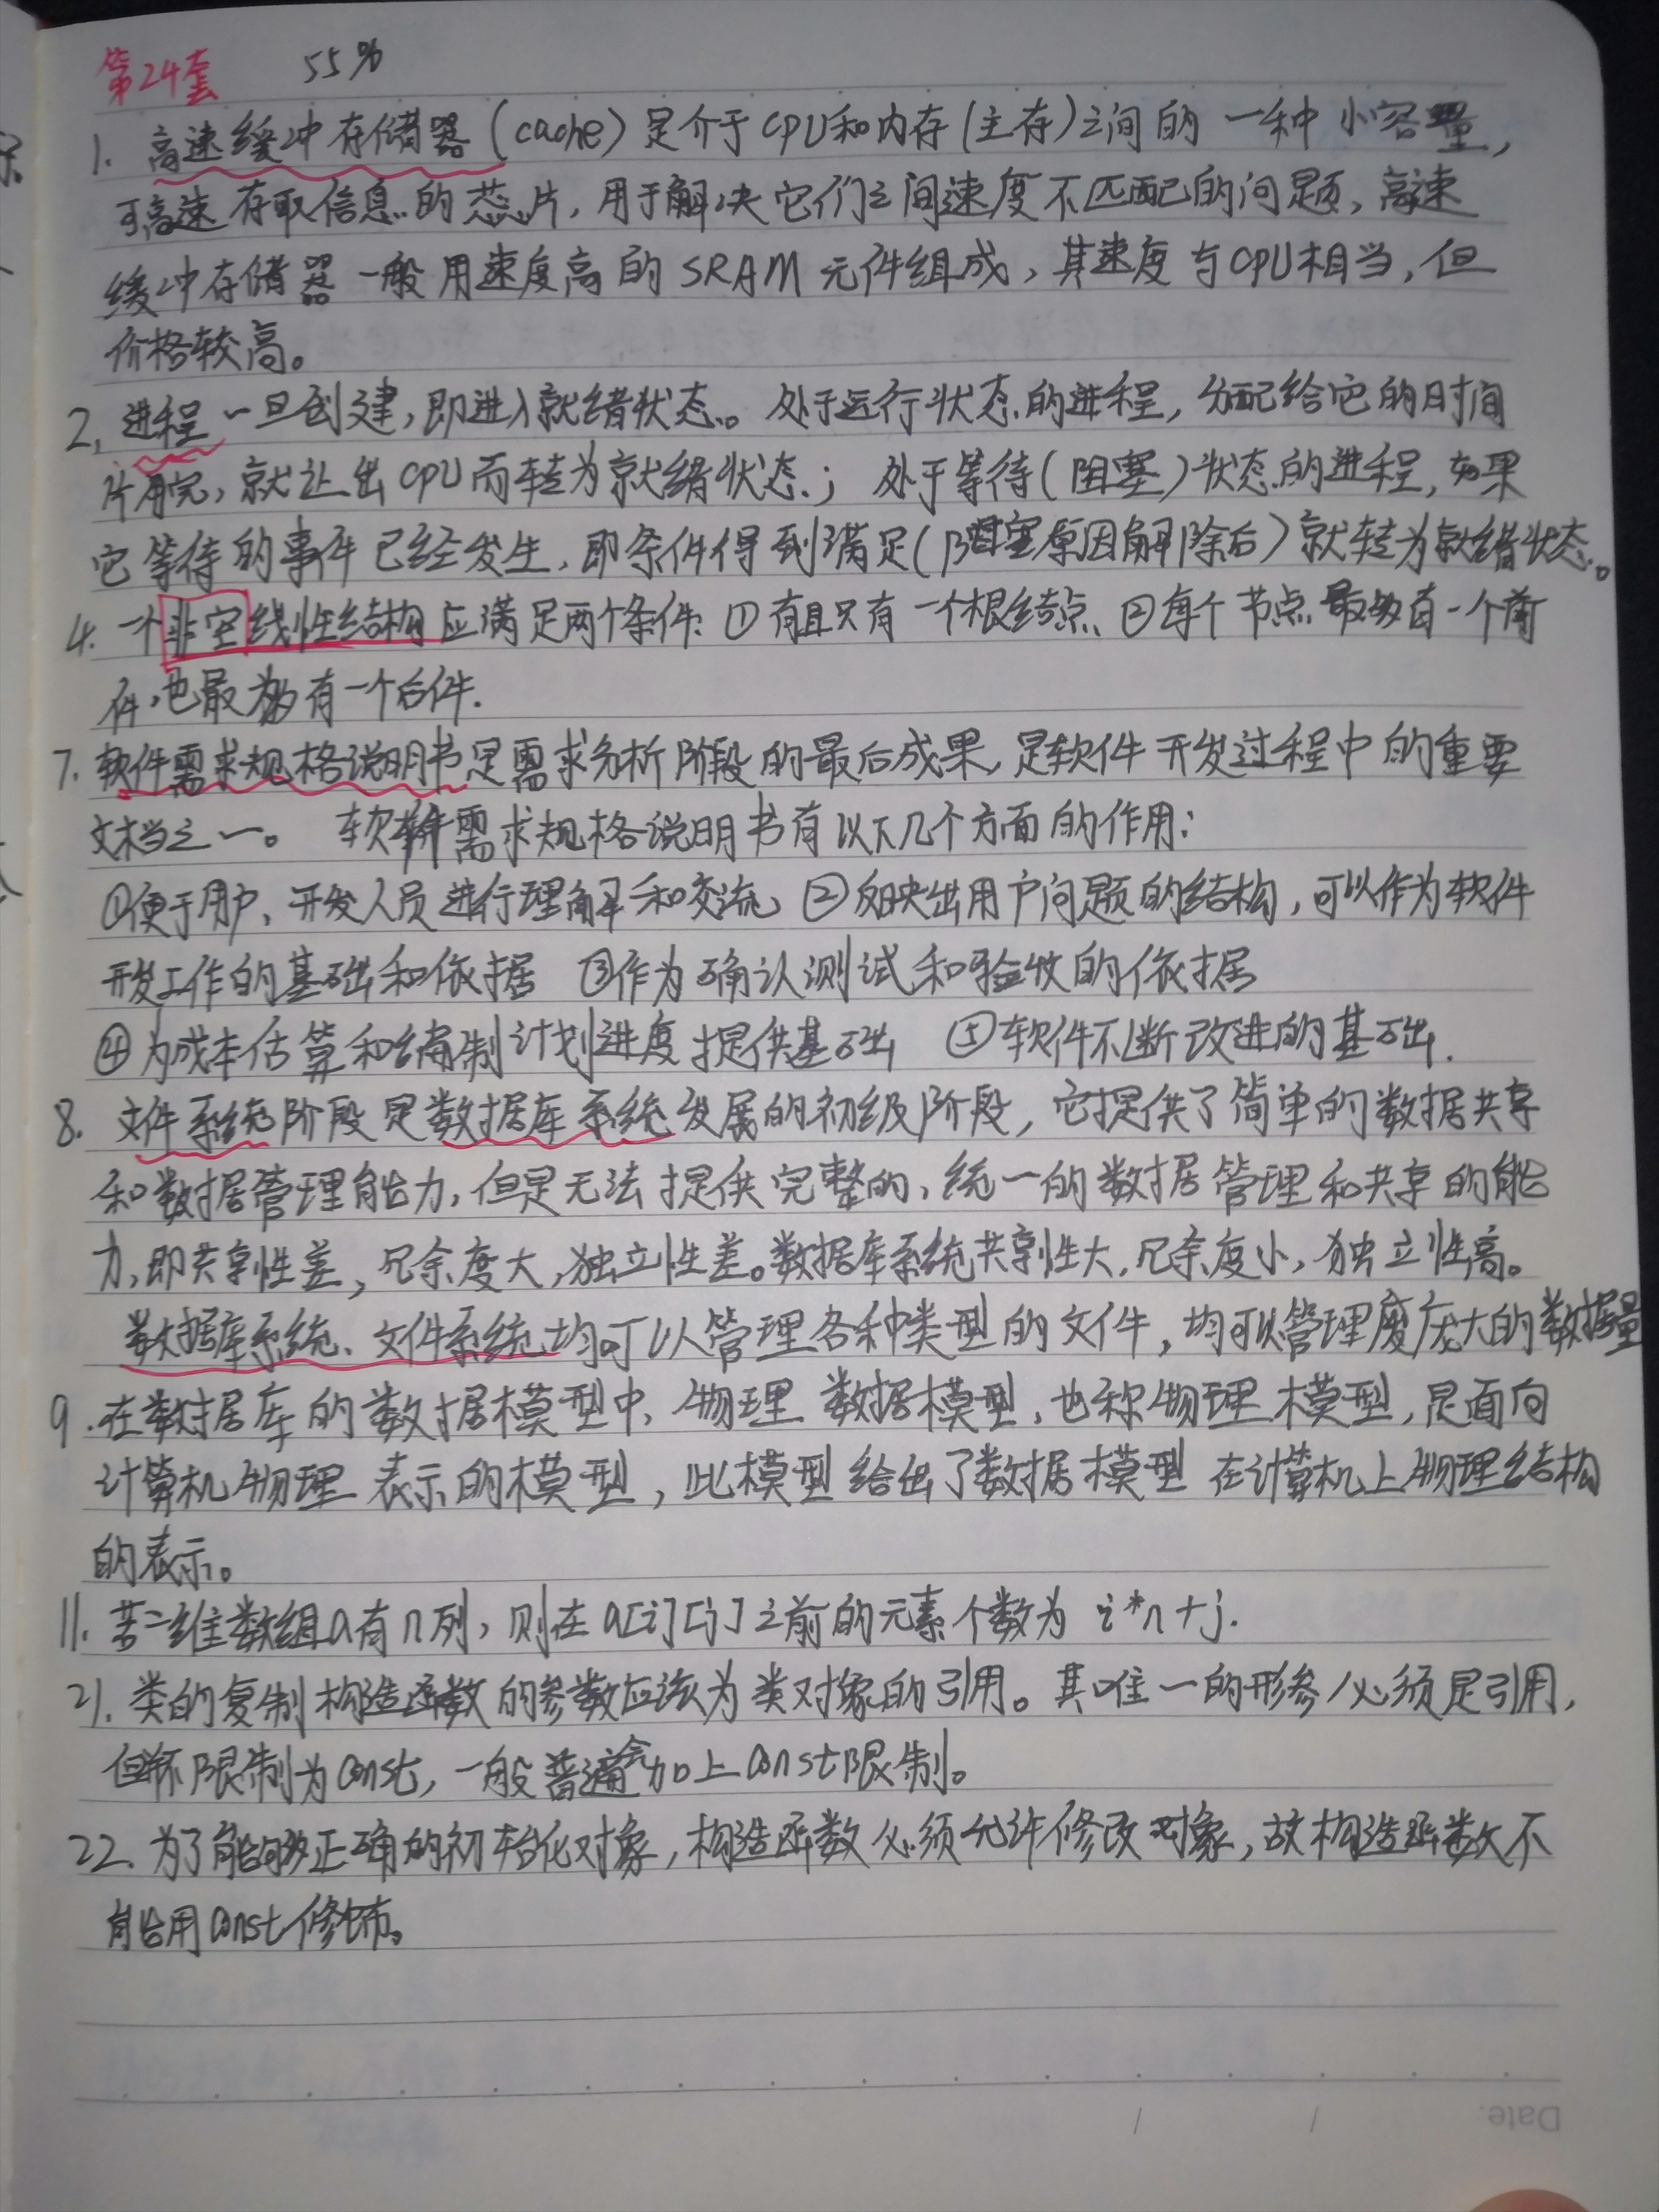 第24套 55%
1. 高速缓冲存储器(cache)是介于CPU和内存(主存)之间的一种小容量,
可高速存取信息的芯片,用于解决它们之间速度不匹配的问题,高速
缓冲存储器一般用速度高的SRAM元件组成,其速度与CPU相当,但
价格较高。
2. 进程一旦创建,即进入就绪状态。处于运行状态的进程,分配给它的时间
片用完,就让出CPU而转为就绪状态;处于等待(阻塞)状态的进程,如果
它等待的事件已经发生,即条件得到满足(阻塞原因解除后)就转为就绪状态。
4. 一个非空线性结构应满足两个条件:①有且只有一个根结点、②每个节点最多有一个前
件,也最多有一个后件.
7. 软件需求规格说明书是需求分析阶段的最后成果,是软件开发过程中的重要
文档之一。 软件需求规格说明书有以下几个方面的作用:
①便于用户、开发人员进行理解和交流 ②反映出用户问题的结构,可以作为软件
开发工作的基础和依据 ③作为确认测试和验收的依据
④为成本估算和编制计划进度提供基础 ⑤软件不断改进的基础.
8. 文件系统阶段是数据库系统发展的初级阶段,它提供了简单的数据共享
和数据管理能力,但是无法提供完整的,统一的数据管理和共享的能
力,即共享性差,冗余度大,独立性差。数据库系统共享性大,冗余度小,独立性高。
数据库系统、文件系统均可以管理各种类型的文件,均可以管理庞大的数据量
9. 在数据库的数据模型中,物理数据模型,也称物理模型,是面向
计算机物理表示的模型,此模型给出了数据模型在计算机上物理结构
的表示。
11. 若二维数组a有n列,则在a[i][j]之前的元素个数为 i*n+j.
21. 类的复制构造函数的参数应该为类对象的引用。其唯一的形参必须是引用,
但不限制为const,一般普遍会加上const限制。
22. 为了能够正确的初始化对象,构造函数必须允许修改对象,故构造函数不
能用const修饰。
Date. / /